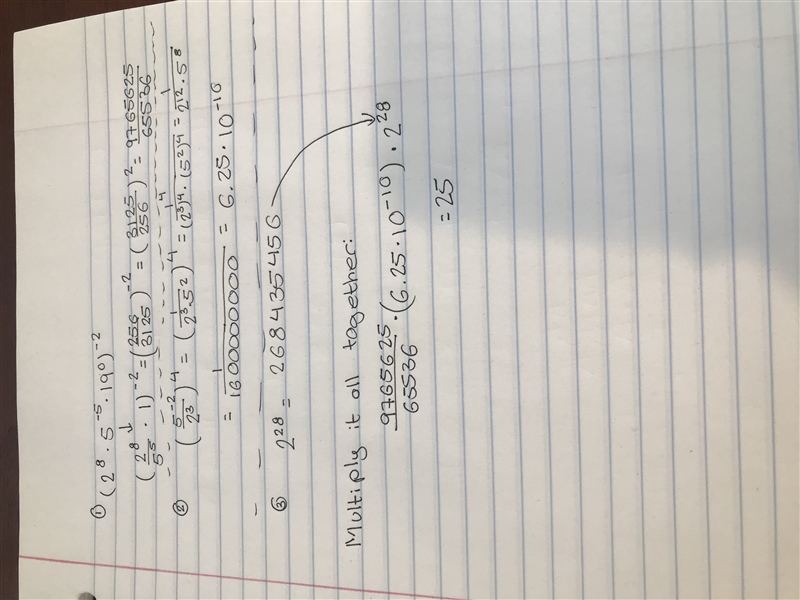 ① (2⁸ · 5⁻⁵ · 19⁰)⁻²
(2⁸/5⁵ · 1)⁻² = (256/3125)⁻² = (3125/256)² = 9765625/65536
② (5⁻²/2³)⁴ = (1/2³·5²)⁴ = 1⁴/(2³)⁴ · (5²)⁴ = 1/2¹² · 5⁸
= 1/1600000000 = 6.25 · 10⁻¹⁰
③ 2²⁸ = 268435456
Multiply it all together:
9765625/65536 · (6.25 · 10⁻¹⁰) · 2²⁸
= 25